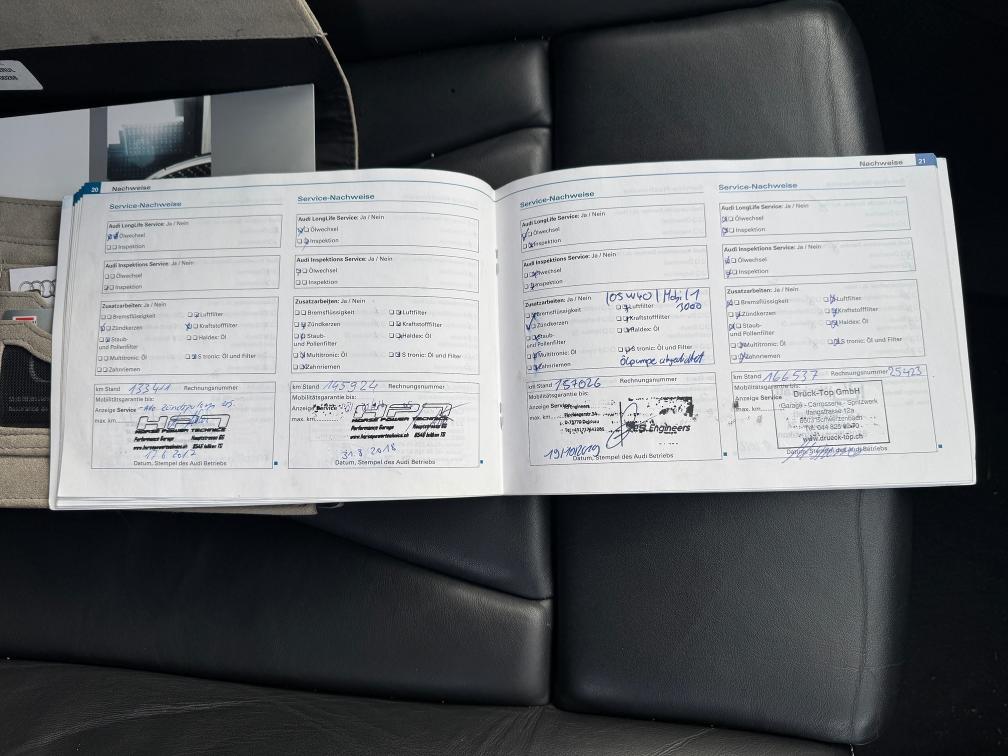 20 Nachweise
Service-Nachweise
Audi LongLife Service: Ja / Nein
Ölwechsel
Inspektion
Audi Inspektions Service: Ja / Nein
Ölwechsel
Inspektion
Zusatzarbeiten: Ja / Nein
Bremsflüssigkeit
Luftfilter
Zündkerzen
Kraftstofffilter
Staub-
und Pollenfilter
Haldex: Öl
Multitronic: Öl
S tronic: Öl und Filter
Zahnriemen
km Stand 133411 Rechnungsnummer
Mobilitätsgarantie bis:
Anzeige Service
max. km
HORSE POWER TECHNICS
Performance Garage Hauptstrasse
17.6.2017
Datum, Stempel des Audi Betriebs
Service-Nachweise
Audi LongLife Service: Ja / Nein
Ölwechsel
Inspektion
Audi Inspektions Service: Ja / Nein
Ölwechsel
Inspektion
Zusatzarbeiten: Ja / Nein
Bremsflüssigkeit
Luftfilter
Zündkerzen
Kraftstofffilter
Staub-
und Pollenfilter
Haldex: Öl
Multitronic: Öl
S tronic: Öl und Filter
Zahnriemen
km Stand 145924 Rechnungsnummer
Mobilitätsgarantie bis:
Anzeige Service
max. km
HORSE POWER TECHNICS
Performance Garage Hauptstrasse
31.8.2018
Datum, Stempel des Audi Betriebs
Nachweise 21
Service-Nachweise
Audi LongLife Service: Ja / Nein
Ölwechsel
Inspektion
Audi Inspektions Service: Ja / Nein
Ölwechsel
Inspektion
Zusatzarbeiten: Ja / Nein
10W40 / Mobil 1
3000
Bremsflüssigkeit
Luftfilter
Zündkerzen
Kraftstofffilter
Staub-
und Pollenfilter
Haldex: Öl
Multitronic: Öl
S tronic: Öl und Filter
Zahnriemen
Ölpumpe
km Stand 157026 Rechnungsnummer
Mobilitätsgarantie bis:
Anzeige Service
max. km
Engineers
19/10/2019
Datum, Stempel des Audi Betriebs
Service-Nachweise
Audi LongLife Service: Ja / Nein
Ölwechsel
Inspektion
Audi Inspektions Service: Ja / Nein
Ölwechsel
Inspektion
Zusatzarbeiten: Ja / Nein
Bremsflüssigkeit
Luftfilter
Zündkerzen
Kraftstofffilter
Staub-
und Pollenfilter
Haldex: Öl
Multitronic: Öl
S tronic: Öl und Filter
Zahnriemen
km Stand 166537 Rechnungsnummer 25423
Mobilitätsgarantie bis:
Anzeige Service
max. km
Drück-Top GmbH
Garage - Carrosserie - Spritzwerk
8603 Schwerzenbach
www.drueck-top.ch
Datum, Stempel des Audi Betriebs